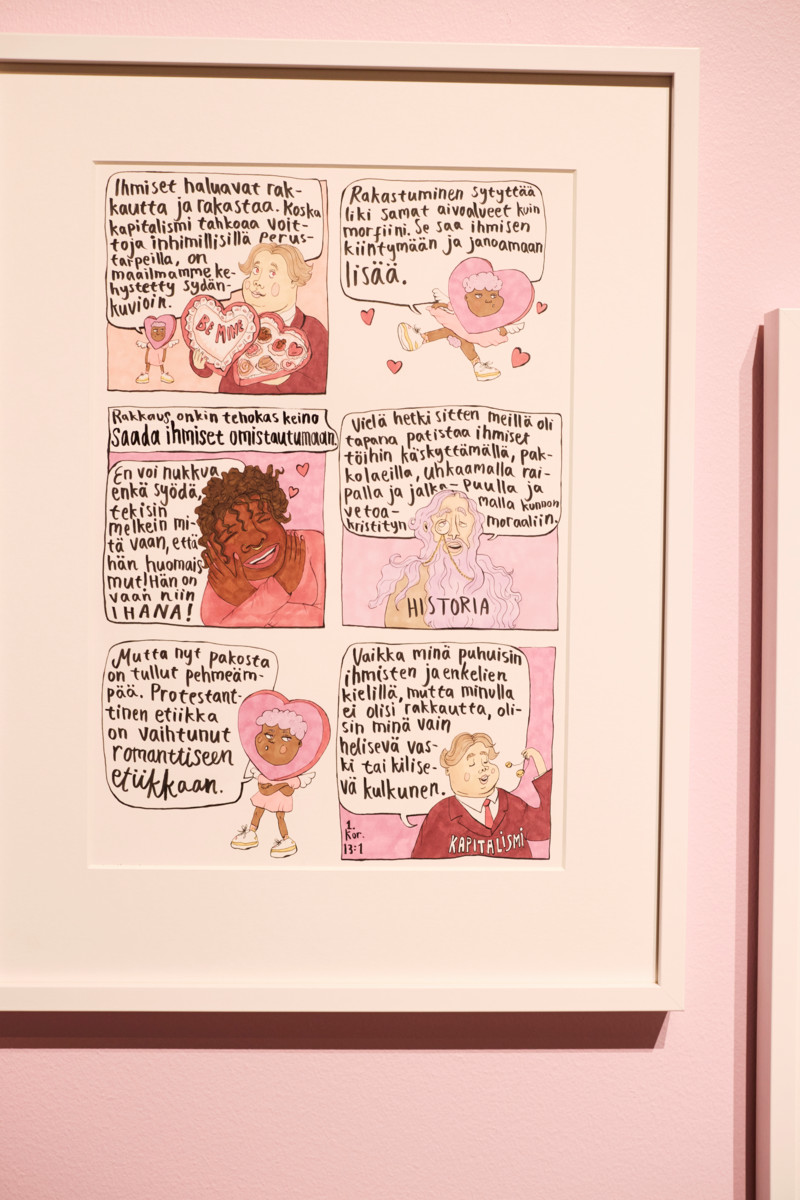 Ihmiset haluavat rak-
kautta ja rakastaa. Koska
kapitalismi tahkoaa voit-
toja inhimillisillä perus-
tarpeilla, on
maailmamme ke-
hystetty sydän-
kuvioin.
BE MINE
Rakastuminen sytyttää
liki samat aivoalueet kuin
morfiini. Se saa ihmisen
kiintymään ja janoamaan
lisää.
Rakkaus onkin tehokas keino
saada ihmiset omistautumaan.
En voi nukkua
enkä syödä,
tekisin
melkein mi-
tä vaan, että
hän huomais
mut! Hän on
vaan niin
IHANA!
Vielä hetki sitten meillä oli
tapana patistaa ihmiset
töihin käskyttämällä, pak-
kolaeilla, uhkaamalla rai-
palla ja jalka-puulla ja
vetoa-malla kunnon
kristityn moraaliin.
HISTORIA
Mutta nyt pakosta
on tullut pehmeäm-
pää. Protestant-
tinen etiikka
on vaihtunut
romanttiseen
etiikkaan.
Vaikka minä puhuisin
ihmisten ja enkelien
kielillä, mutta minulla
ei olisi rakkautta, oli-
sin minä vain
helisevä vas-
ki tai kilise-
vä kulkunen.
1.
Kor.
13:1
KAPITALISMI